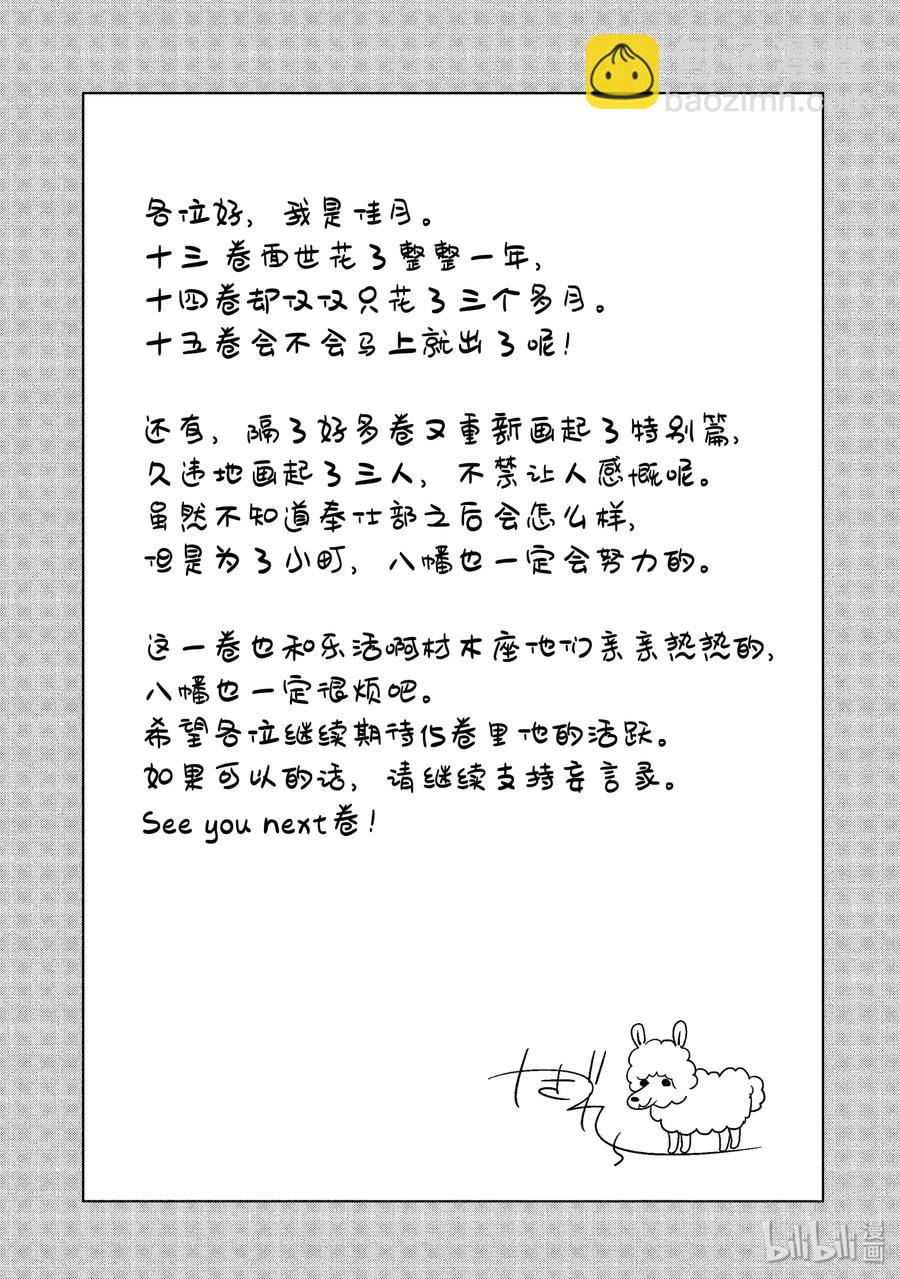 baozimh.c
各位好，我是佳月。
十三卷面世花了整整一年，
十四卷却仅仅只花了三个多月。
十五卷会不会马上就出了呢！
还有，隔了好多卷又重新画起了特别篇，
久违地画起了三人，不禁让人感慨呢。
虽然不知道奉仕部之后会怎么样，
但是为了小町，八幡也一定会努力的。
这一卷也和乐活啊材木座他们亲亲热热的，
八幡也一定很烦吧。
希望各位继续期待15卷里他的活跃。
如果可以的话，请继续支持妄言录。
See you next卷！
bilibili漫画